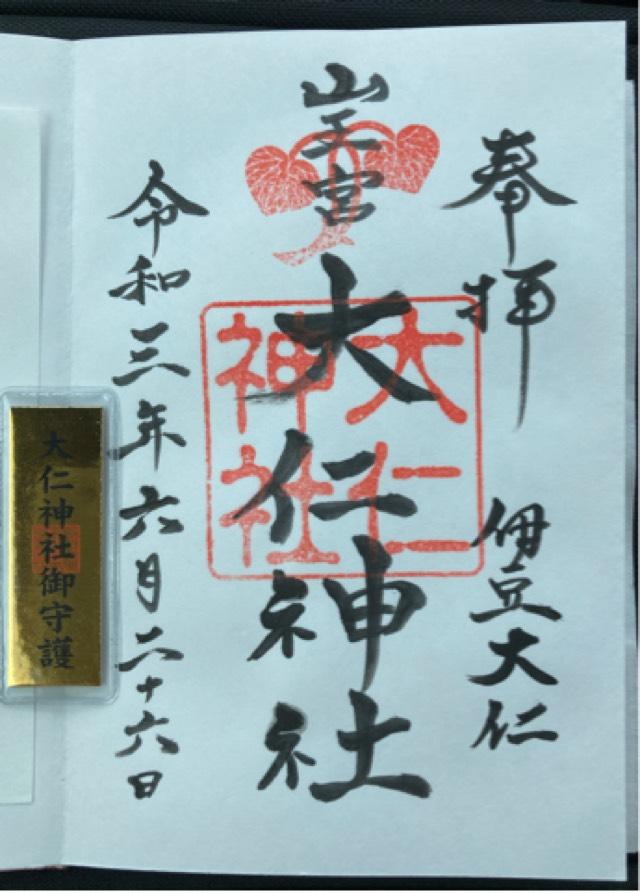 奉拝
伊豆大仁
山王宮
大仁神社
大仁
神社
令和三年六月二十六日
大仁神社御守護